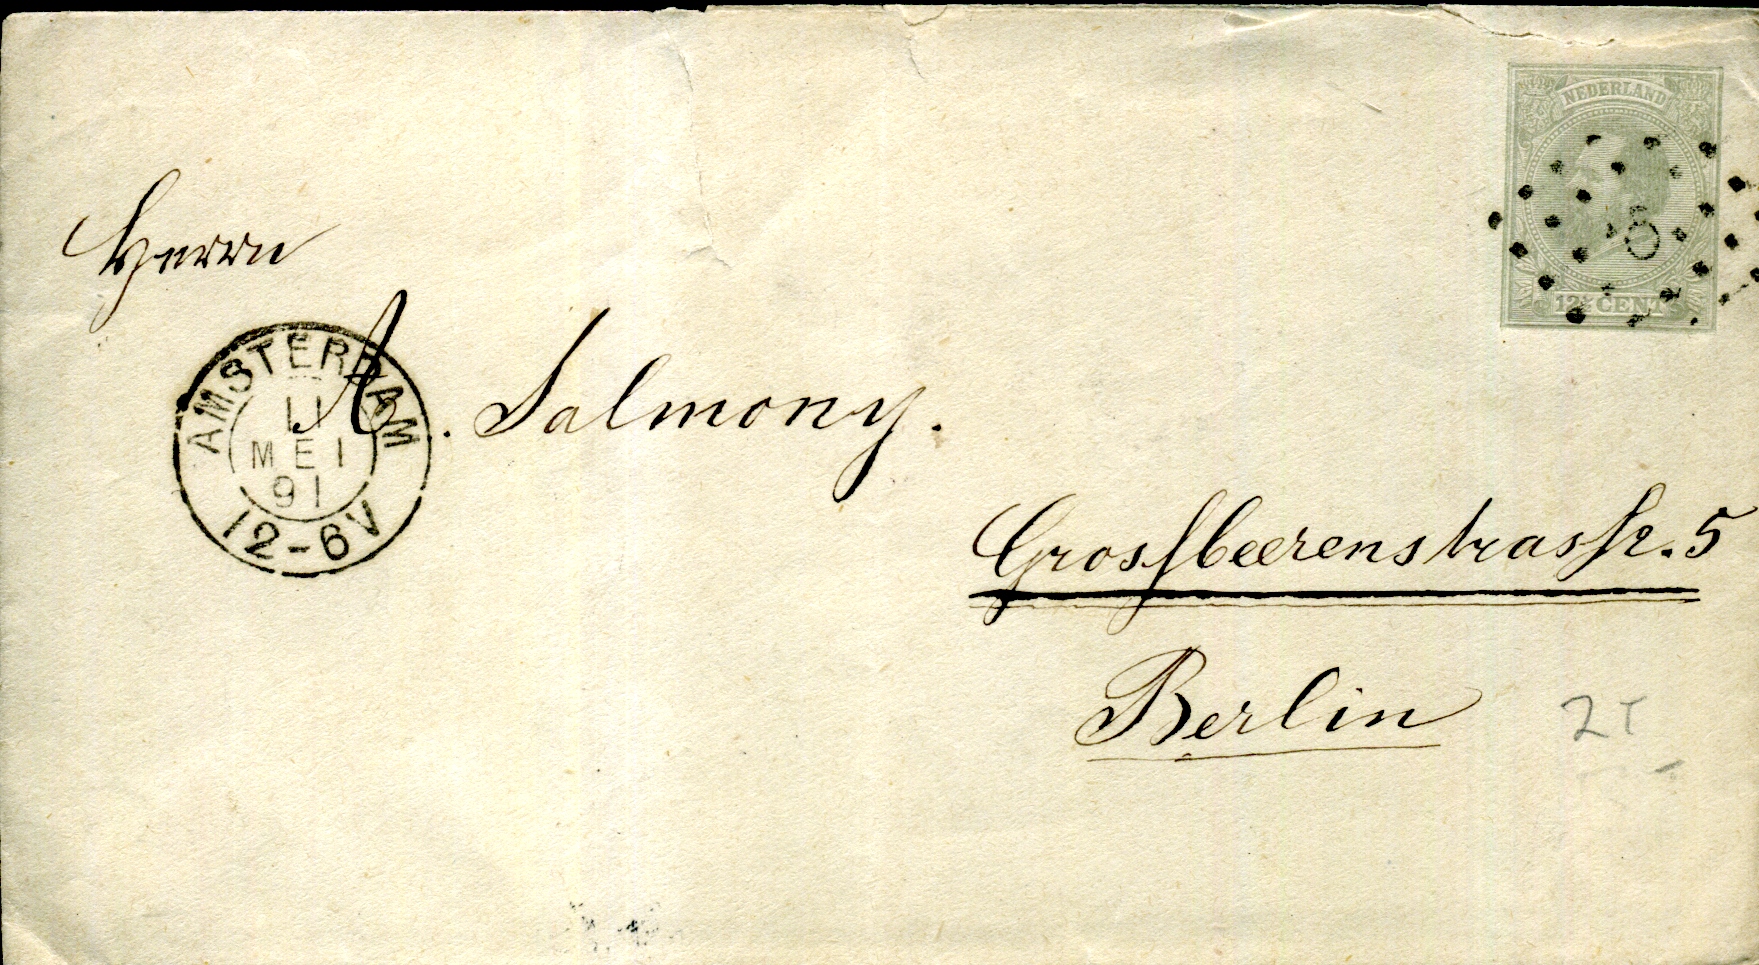 NEDERLAND
12½ CENT
5
Herrn
A. Salmony.
AMSTERDAM
11
MEI
91
12-6V
Grossbeerenstrasse. 5
Berlin